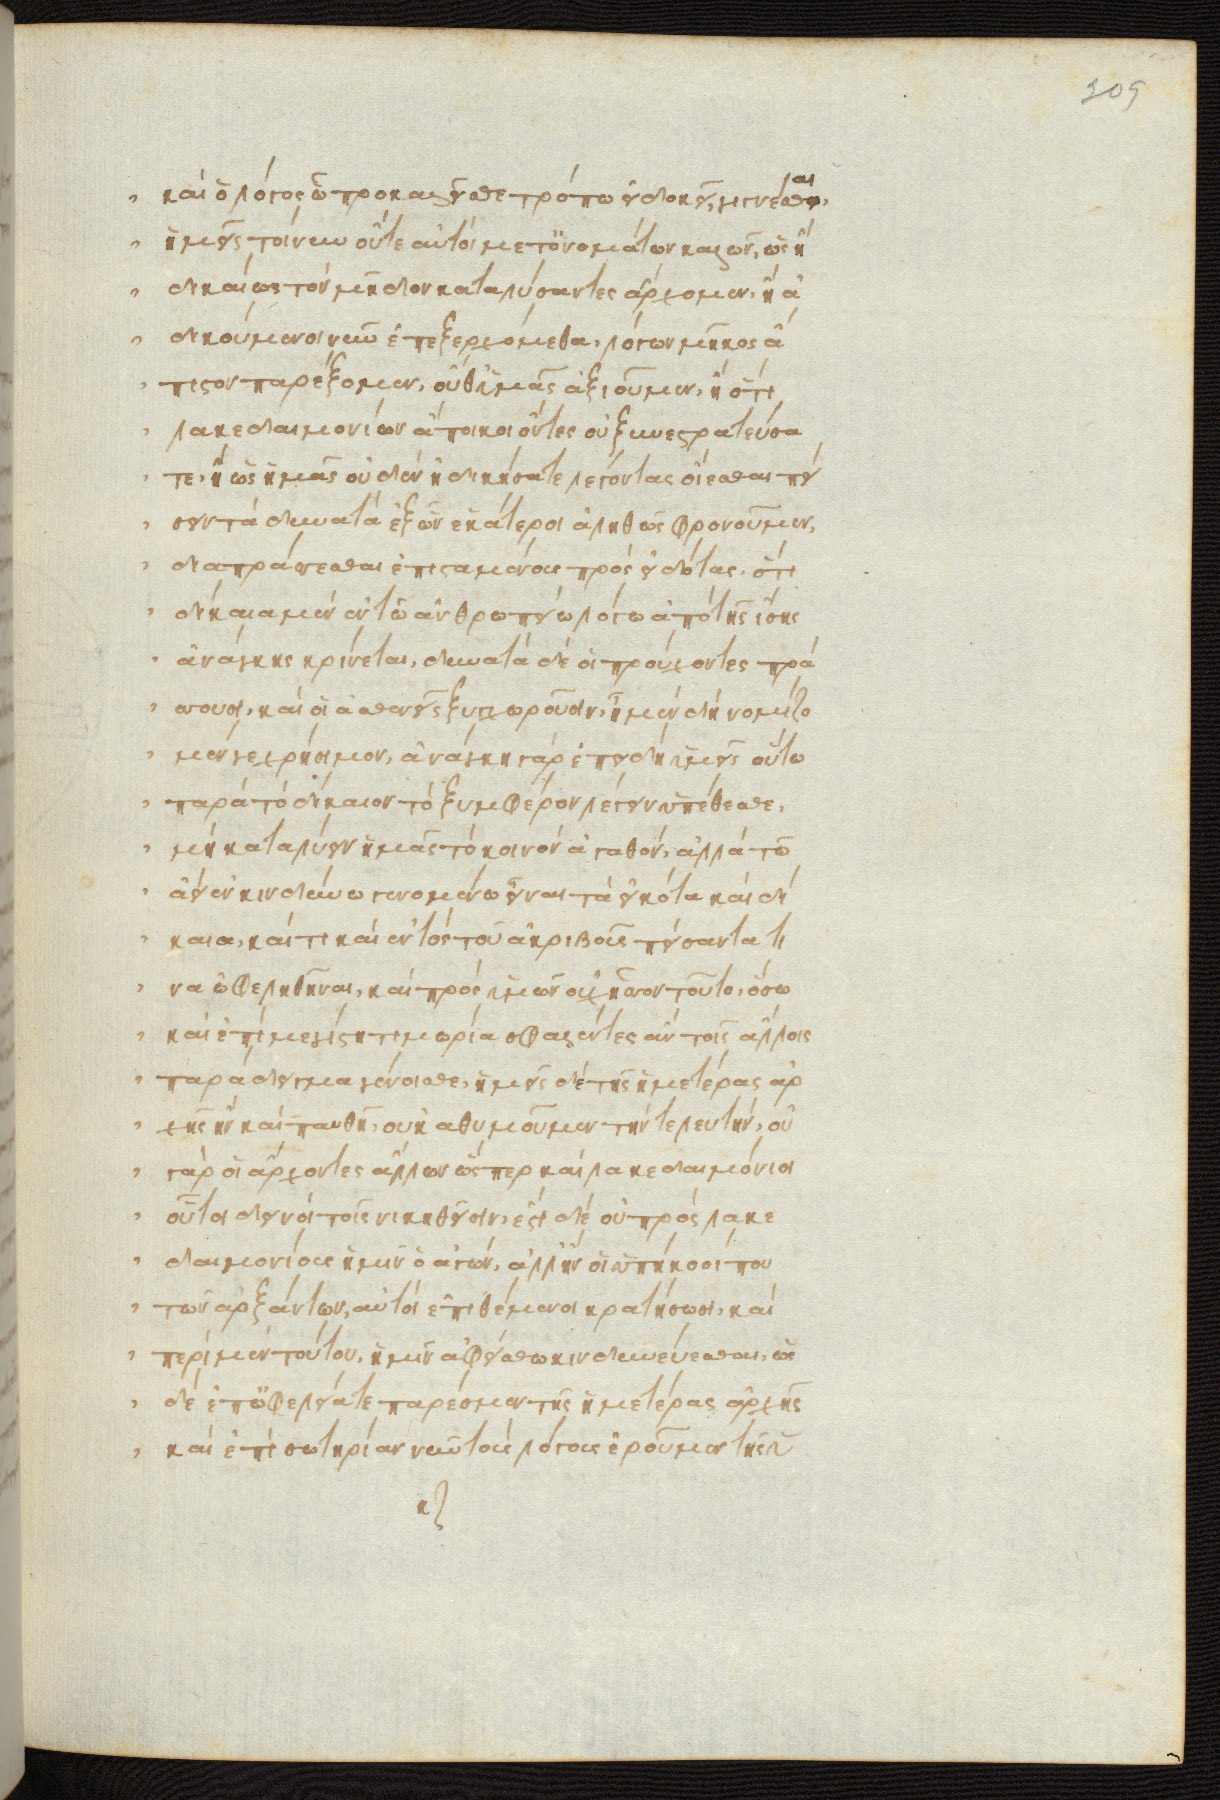 209
καὶ ὁ λόγος ᾧ προκαλεῖσθε τρόπω εἰ δοκεῖ, γιγνέσθω,
ἡμεῖς τοίνυν οὔτε αὐτοὶ μετ᾽ ὀνομάτων καλῶν, ὡς ἢ
δικαίως τὸν μῆδον καταλύσαντες ἄρχομεν, ἢ ἀ
δικούμενοι νῦν ἐπεξερχόμεθα, λόγων μῆκος ἄ
πιστον παρέξομεν, οὔθ᾽ ὑμᾶς ἀξιοῦμεν, ἢ ὅτι
λακεδαιμονίων ἄποικοι ὄντες οὐ ξυνεστρατεύσα
τε, ἢ ὡς ἡμᾶς οὐδὲν ἠδικήσατε λέγοντας οἴεσθαι πεί
σειν τὰ δυνατὰ ἐξ ὧν ἑκάτεροι ἀληθῶς φρονοῦμεν,
διαπράττεσθαι ἐπισταμένους πρὸς εἰδότας, ὅτι
δίκαια μὲν ἐν τῶ ἀνθρωπείω λόγω ἀπὸ τῆς ἴσης
ἀνάγκης κρίνεται, δυνατὰ δὲ οἱ προύχοντες πρά
ττουσι, καὶ οἱ ἀσθενεῖς ξυγχωροῦσιν, ἧ μὲν δὴ νομίζο
μεν γε χρήσιμον, ἀνάγκη γὰρ ἐπειδὴ ὑμεῖς οὕτω
παρὰ τὸ δίκαιον τὸ ξυμφέρον λέγειν ὑπέθεσθε,
μὴ καταλύειν ἡμᾶς τὸ κοινὸν ἀγαθόν, ἀλλὰ τῶ
ἀεὶ ἐν κινδύνω γενομένω εἶναι τὰ εἰκότα καὶ δί
καια, καί τι καὶ ἐντὸς τοῦ ἀκριβοῦς πείσαντα τι
να ὠφεληθῆναι, καὶ πρὸς ὑμῶν οὐχ ἧττον τοῦτο, ὅσω
καὶ ἐπὶ μεγίστη τιμωρία σφαλέντες ἂν τοῖς ἄλλοις
παράδειγμα γένοισθε, ἡμεῖς δὲ τῆς ἡμετέρας ἀρ
χῆς ἢν καὶ παυθῆ, οὐκ ἀθυμοῦμεν τὴν τελευτήν, οὐ
γὰρ οἱ ἄρχοντες ἄλλων ὥσπερ καὶ λακεδαιμόνιοι
οὗτοι δεινοὶ τοῖς νικηθεῖσιν, ἔστι δὲ οὐ πρὸς λακε
δαιμονίους ἡμῖν ὁ ἀγών, ἀλλ᾽ ἢν οἱ ὑπήκοοί που
τῶν ἀρξάντων, αὐτοὶ ἐπιθέμενοι κρατήσωσι, καὶ
περὶ μὲν τούτου, ἡμῖν ἀφείσθω κινδυνεύεσθαι, ὡς
δὲ ἐπ᾽ ὠφελείατε παρέσμεν τῆς ἡμετέρας ἀρχῆς
καὶ ἐπὶ σωτηρίαν νῦν τοὺς λόγους ἐροῦμεν τῆς ὑ